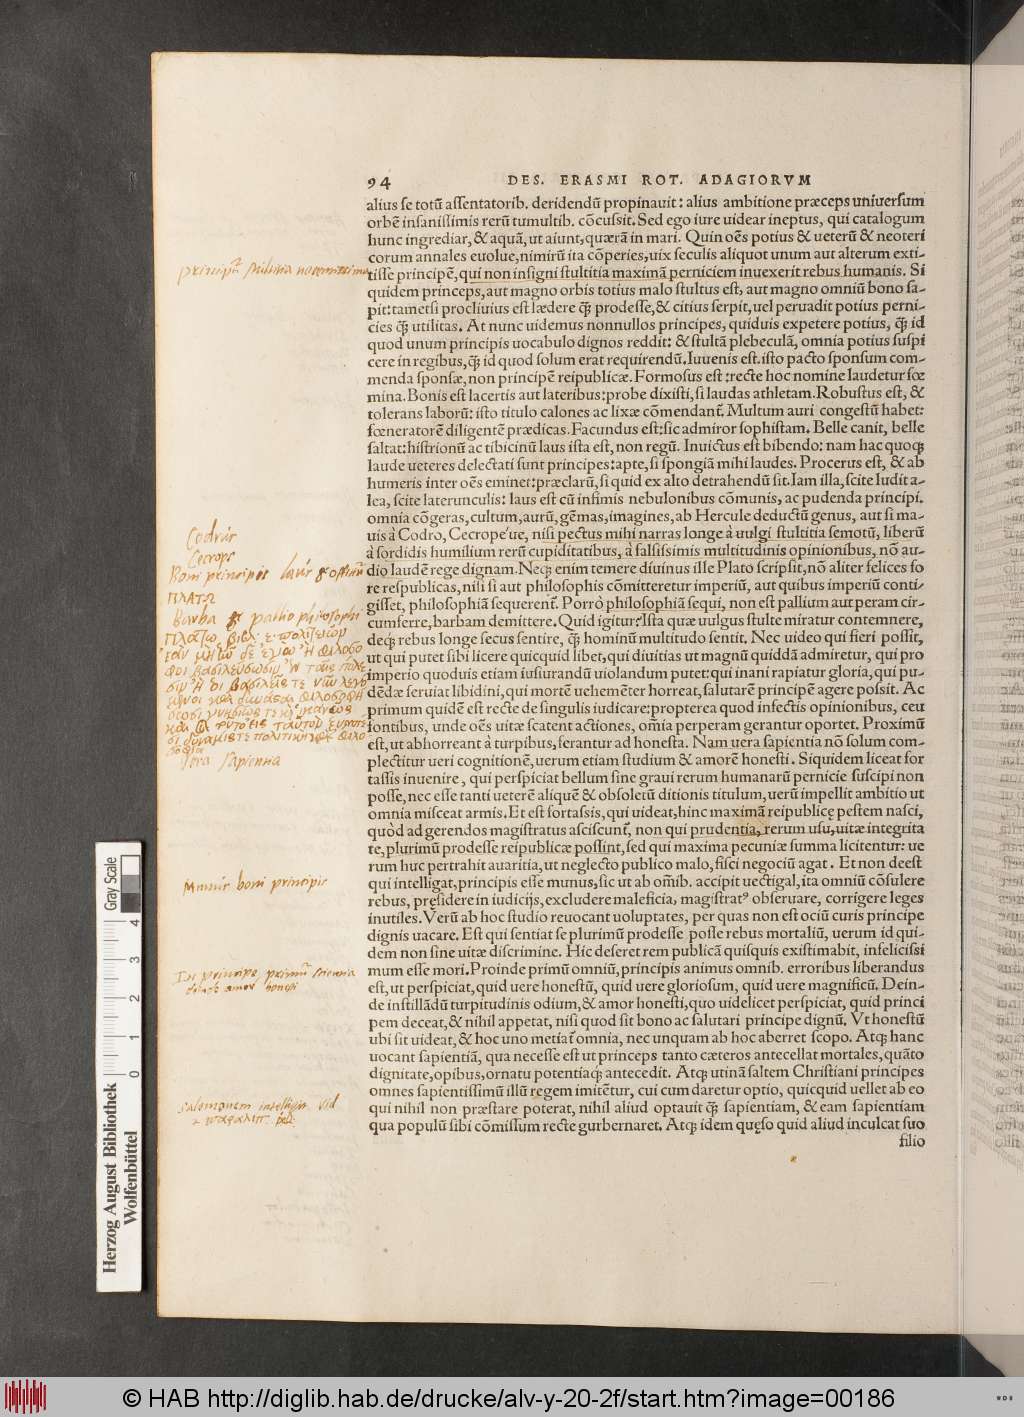 94 DES. ERASMI ROT. ADAGIORVM
alius se totũ assentatorib. deridendũ propinauit: alius ambitione præceps uniuersum
orbẽ insanissimis rerũ tumultib. cõcussit. Sed ego iure uidear ineptus, qui catalogum
hunc ingrediar, & aquã, ut aiunt, quærã in mari. Quin oẽs potius & ueterũ & neoteri
corum annales euolue, nimirũ ita cõperies, uix seculis aliquot unum aut alterum exti-
tisse principẽ, qui non insigni stultitia maximã perniciem inuexerit rebus humanis. Si
quidem princeps, aut magno orbis totius malo stultus est, aut magno omniũ bono sa-
pit: tametsi procliuius est lædere q̃ȝ prodesse, & citius serpit, uel peruadit potius perni-
cies q̃ȝ utilitas. At nunc uidemus nonnullos principes, quiduis expetere potius, q̃ȝ id
quod unum principis uocabulo dignos reddit: & stultã plebeculã, omnia potius suspi
cere in regibus, q̃ȝ id quod solum erat requirendũ. Iuuenis est. isto pacto sponsum com-
menda sponsæ, non principẽ reipublicæ. Formosus est: recte hoc nomine laudetur fœ
mina. Bonis est lacertis aut lateribus: probe dixisti, si laudas athletam. Robustus est, &
tolerans laborũ: isto titulo calones ac lixæ cõmendant̃. Multum auri congestũ habet:
fœneratorẽ diligentẽ prædicas. Facundus est: sic admiror sophistam. Belle canit, belle
saltat: histrionũ ac tibicinũ laus ista est, non regũ. Inuictus est bibendo: nam hac quoqȝ
laude ueteres delectati sunt principes: apte, si spongiã mihi laudes. Procerus est, & ab
humeris inter oẽs eminet: præclarũ, si quid ex alto detrahendũ sit. Iam illa, scite ludit a-
lea, scite laterunculis: laus est cũ infimis nebulonibus cõmunis, ac pudenda principi.
omnia cõgeras, cultum, aurũ, gẽmas, imagines, ab Hercule deductũ genus, aut si ma-
uis à Codro, Cecrope'ue, nisi pectus mihi narras longe à uulgi stultitia semotũ, liberũ
à sordidis humilium rerũ cupiditatibus, à falsissimis multitudinis opinionibus, nõ au-
dio laudẽ rege dignam. Neqȝ enim temere diuinus ille Plato scripsit, nõ aliter felices fo
re respublicas, nisi si aut philosophis cõmitteretur imperiũ, aut quibus imperiũ conti-
gisset, philosophiã sequerent̃. Porrò philosophiã sequi, non est pallium aut peram cir-
cumferre, barbam demittere. Quid igitur? Ista quæ uulgus stulte miratur contemnere,
deqȝ rebus longe secus sentire, q̃ȝ hominũ multitudo sentit. Nec uideo qui fieri possit,
ut qui putet sibi licere quicquid libet, qui diuitias ut magnũ quiddã admiretur, qui pro
imperio quoduis etiam iusiurandũ uiolandum putet: qui inani rapiatur gloria, qui pu-
dẽdæ seruiat libidini, qui mortẽ uehemẽter horreat, salutarẽ principẽ agere possit. Ac
primum quidẽ est recte de singulis iudicare: propterea quod infectis opinionibus, ceu
fontibus, unde oẽs uitæ scatent actiones, om̃ia perperam gerantur oportet. Proximũ
est, ut abhorreant à turpibus, ferantur ad honesta. Nam uera sapientia nõ solum com-
plectitur ueri cognitionẽ, uerum etiam studium & amorẽ honesti. Siquidem liceat for
tassis inuenire, qui perspiciat bellum sine graui rerum humanarũ pernicie suscipi non
posse, nec esse tanti ueterẽ aliquẽ & obsoletũ ditionis titulum, uerũ impellit ambitio ut
omnia misceat armis. Et est fortassis, qui uideat, hinc maximã reipublicę pestem nasci,
quòd ad gerendos magistratus asciscunt̃, non qui prudentia, rerum usu, uitæ integrita
te, plurimũ prodesse reipublicæ possint, sed qui maxima pecuniæ summa licitentur: ue
rum huc pertrahit auaritia, ut neglecto publico malo, fisci negociũ agat. Et non deest
qui intelligat, principis esse munus, sic ut ab om̃ib. accipit uectigal, ita omniũ cõsulere
rebus, pręsidere in iudicijs, excludere maleficia, magistratꝰ obseruare, corrigere leges
inutiles. Verũ ab hoc studio reuocant uoluptates, per quas non est ociũ curis principe
dignis uacare. Est qui sentiat se plurimũ prodesse posse rebus mortaliũ, uerum id qui-
dem non sine uitæ discrimine. Hic deseret rem publicã quisquis existimabit, infelicissi
mum esse mori. Proinde primũ omniũ, principis animus omnib. erroribus liberandus
est, ut perspiciat, quid uere honestũ, quid uere gloriosum, quid uere magnificũ. Dein-
de instillãdũ turpitudinis odium, & amor honesti, quo uidelicet perspiciat, quid princi
pem deceat, & nihil appetat, nisi quod sit bono ac salutari principe dignũ. Vt honestũ
ubi sit uideat, & hoc uno metiat̃ omnia, nec unquam ab hoc aberret scopo. Atqȝ hanc
uocant sapientiã, qua necesse est ut princeps tanto cæteros antecellat mortales, quãto
dignitate, opibus, ornatu potentiaqȝ antecedit. Atqȝ utinã saltem Christiani principes
omnes sapientissimũ illũ regem imitẽtur, cui cum daretur optio, quicquid uellet ab eo
qui nihil non præstare poterat, nihil aliud optauit q̃ȝ sapientiam, & eam sapientiam
qua populũ sibi cõmissum recte gurbernaret. Atqȝ idem quęso quid aliud inculcat suo
filio
principũ stultitia
Codrus
Cecrops
Boni principis laus & officiũ
ΠΛΑΤΩ
Barba & pallio philosophi
Vera sapientia
Munus boni principis
In principe primũ scientia
deinde amor honesti
Salomonem intelligit. Vid
2 παραλιπ.
Herzog August Bibliothek
Wolfenbüttel
Gray Scale
0 1 2 3 4
© HAB http://diglib.hab.de/drucke/alv-y-20-2f/start.htm?image=00186